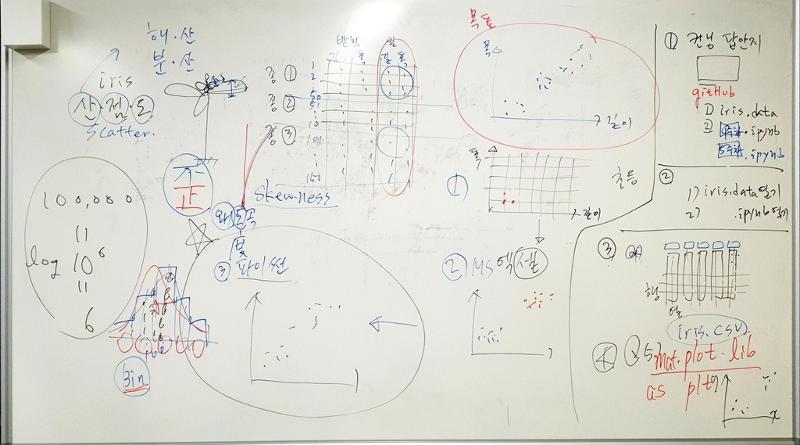 해·산
분·산
iris
산·점·도
Scatter.
100,000
11
log 10⁶
11
6
Bin
종 ①
종 ②
종 ③
받친
길 폭
잎
길 폭
1
2
50
51
150
Skewness
왜 곡
③ 파이썬
폭
길이
①
폭
길이
초등
② MS 엑셀
① 컨닝 답안지
gitHub
① iris.data
② .ipynb
.ipynb
②
1) iris.data 열기
2) .ipynb 열기
③
행
열
iris.CSV
mat.plot.lib
as plt
x